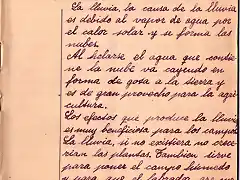 La lluvia, la causa de la lluvia
es debido al vapor de agua por
el calor solar y se forma las
nubes.
Al helarse el agua que contie-
ne la nube va cayendo en
forma de gota a la tierra y
es de gran provecho para la agri-
cultura.
Los efectos que produce la lluvia
es muy beneficiosa para los campos
La lluvia, si no existiera no crece-
rian las plantas. Tambien sirve
para poner el campo humedo
y para que el labrador are